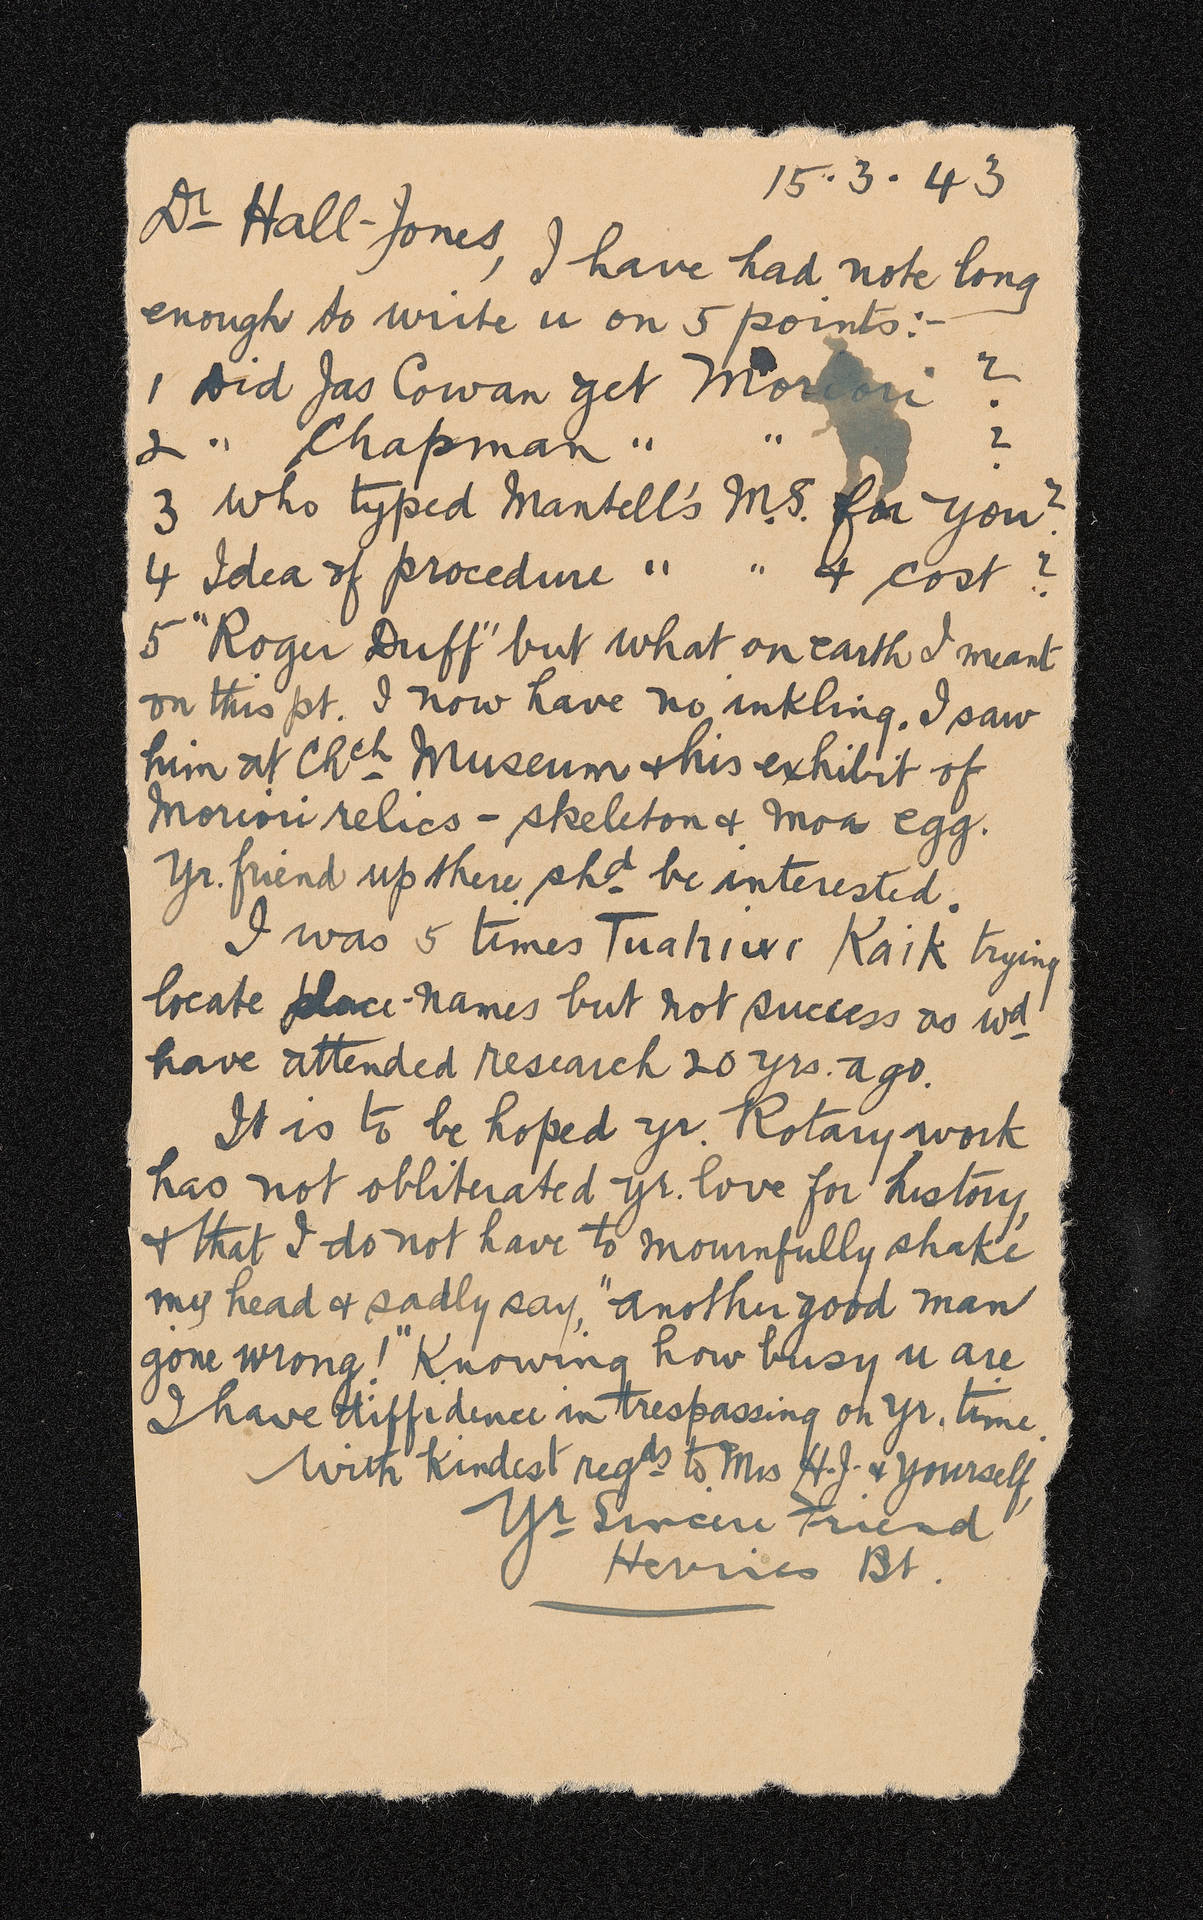 15.3.43
Dr Hall-Jones, I have had note long
enough to write u on 5 points:-
1 Did Jas Cowan get Moriori ?
2 " Chapman " " ?
3 who typed Mantell's M.S. for you?
4 Idea of procedure " " & cost ?
5 "Roger Duff" but what on earth I meant
on this pt. I now have no inkling. I saw
him at Chch Museum & his exhibit of
Moriori relics - skeleton & moa egg.
Yr. friend up there shd be interested.
I was 5 times Tuahiwi Kaik trying
locate place-names but not success as wd
have attended research 20 yrs. ago.
It is to be hoped yr. Rotary work
has not obliterated yr. love for history,
& that I do not have to mournfully shake
my head & sadly say, "another good man
gone wrong!" Knowing how busy u are
I have diffidence in trespassing on yr. time.
With kindest regds to Mrs H.J. & yourself,
Yr Sincere Friend
Herries Bt.